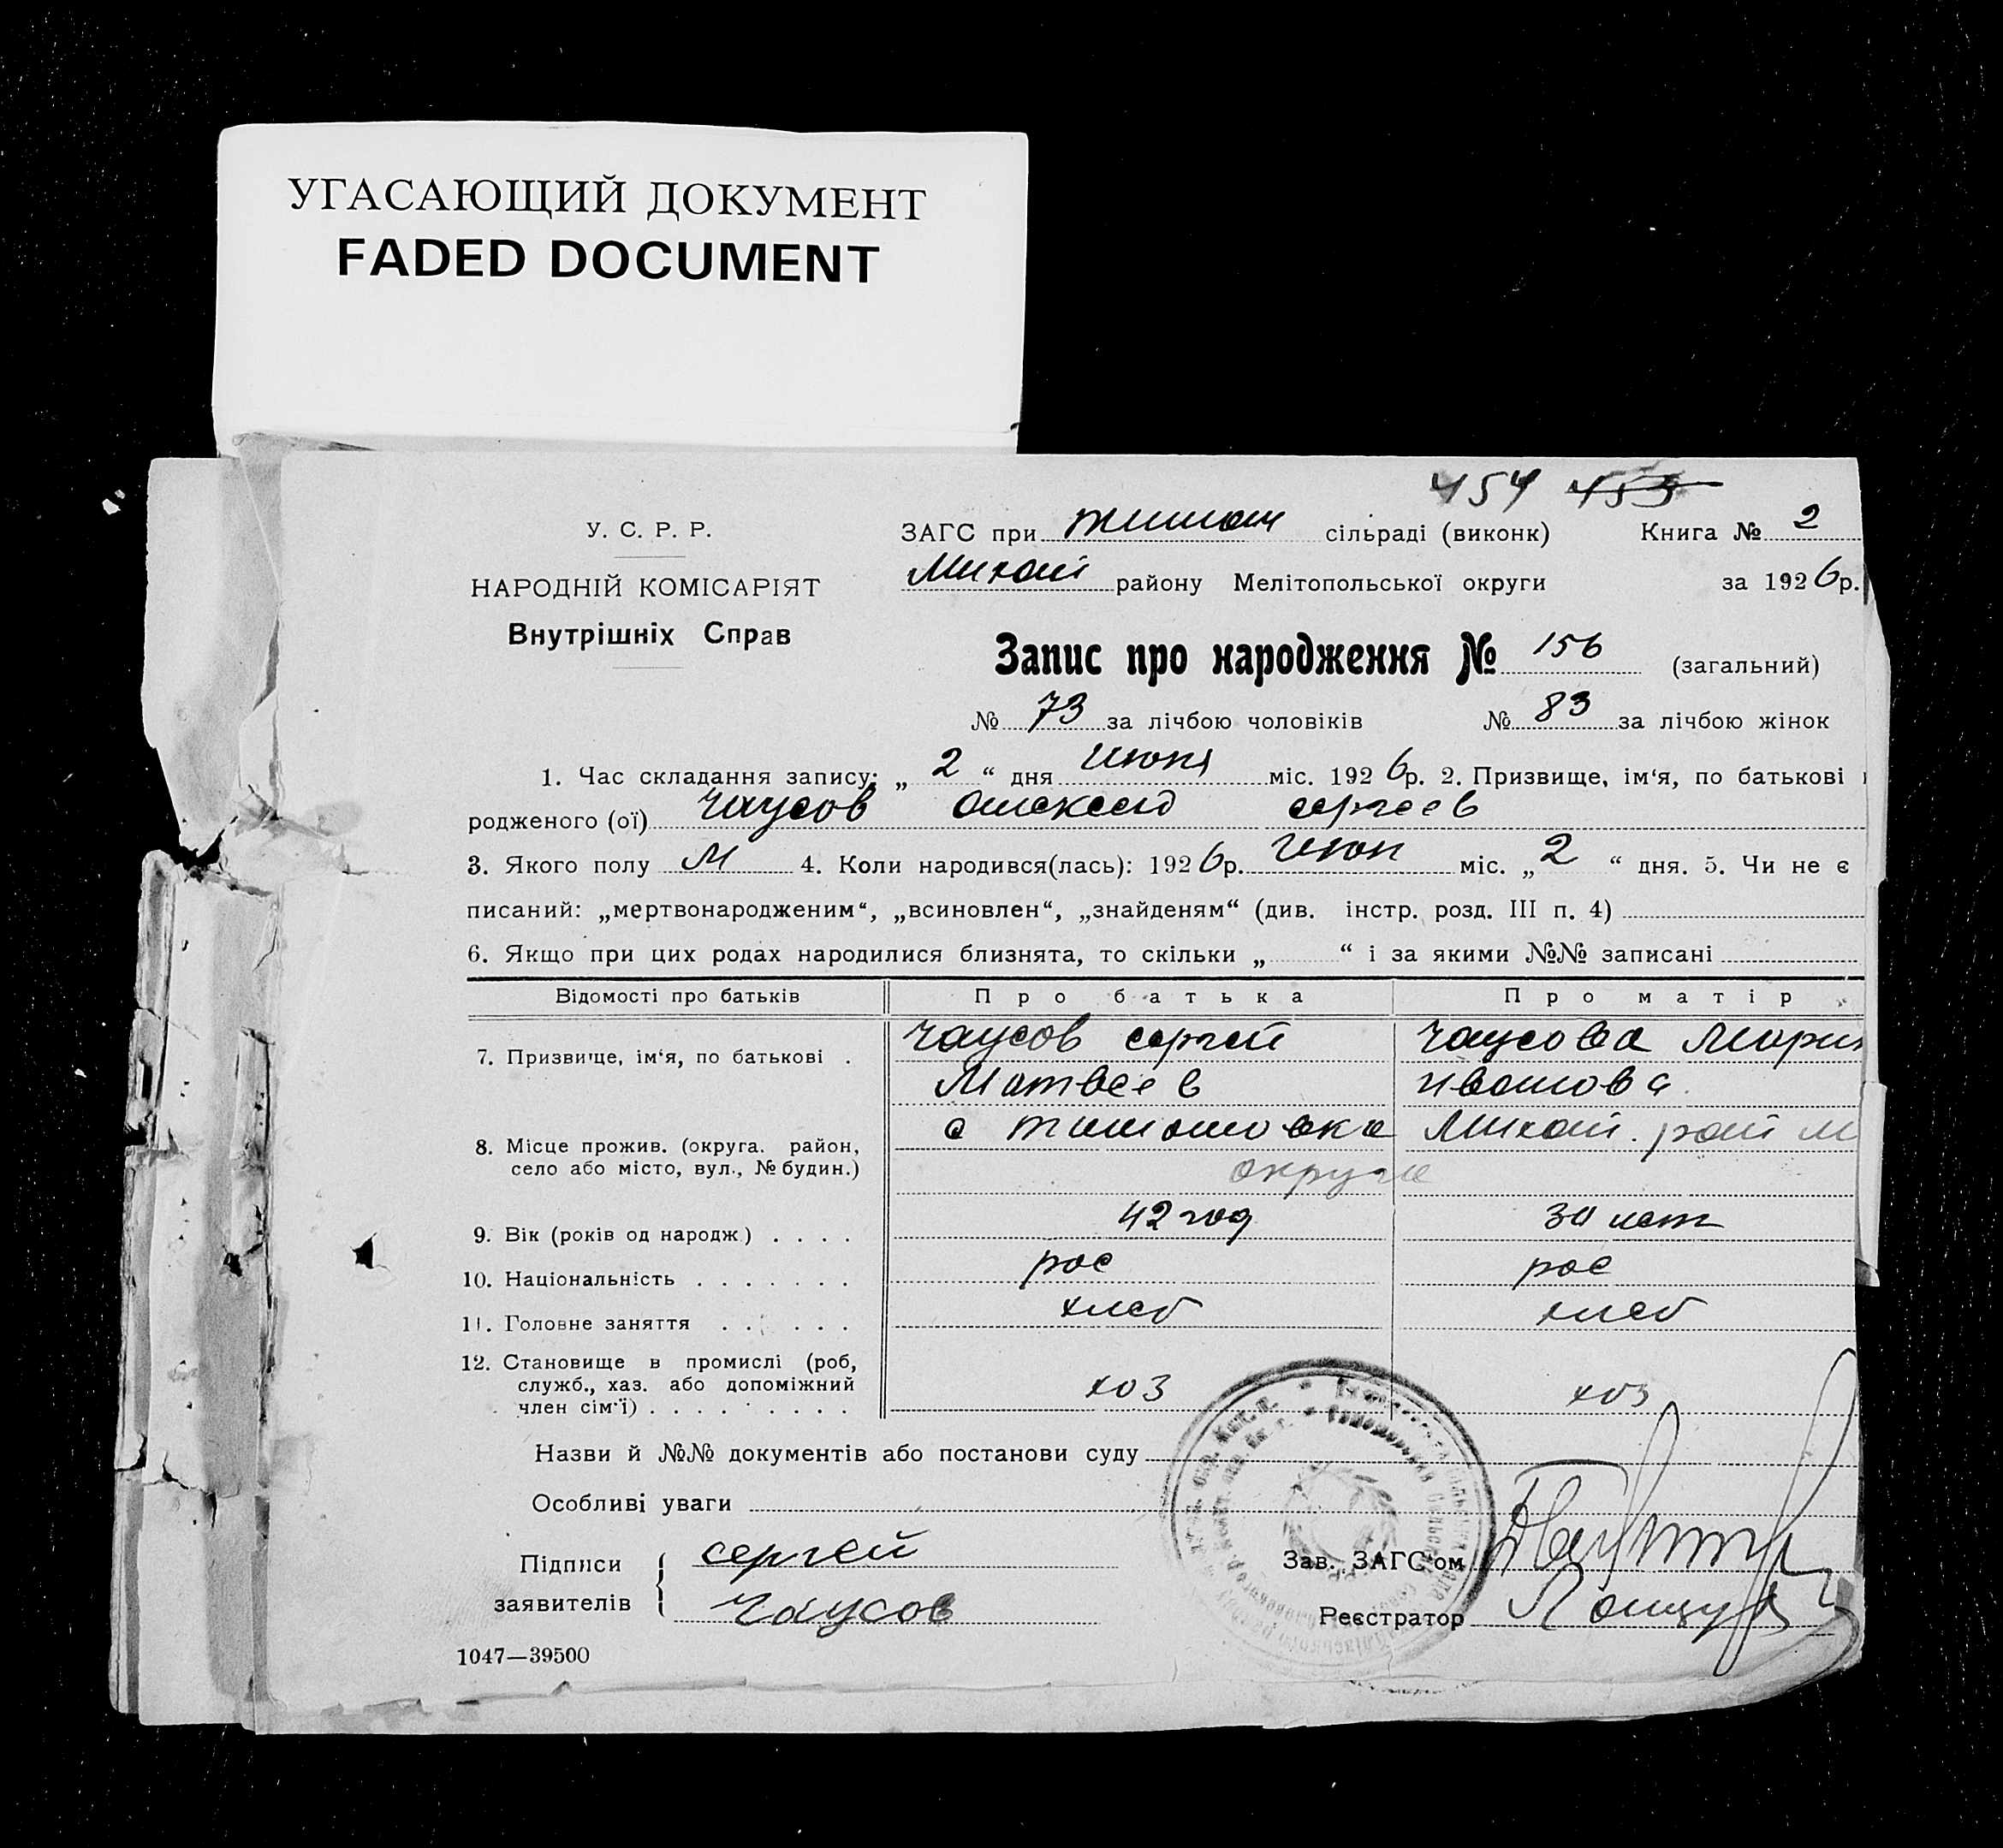 УГАСАЮЩИЙ ДОКУМЕНТ
FADED DOCUMENT
454 453
У. С. Р. Р.
НАРОДНІЙ КОМІСАРІЯТ
Внутрішніх Справ
ЗАГС при тимош сільраді (виконк) Книга № 2
Михай району Мелітопольської округи за 1926р.
Запис про народження № 156 (загальний)
№ 73 за лічбою чоловіків № 83 за лічбою жінок
1. Час складання запису: „ 2 “ дня Июня міс. 1926р. 2. Призвище, ім‘я, по батькові
родженого (ої) Чаусов Александ Сергеев
3. Якого полу М 4. Коли народився(лась): 1926р. Июн міс. „2 “ дня. 5. Чи не є
писаний: „мертвонародженим“, „всиновлен“, „знайденям“ (див. інстр. розд. III п. 4)
6. Якщо при цих родах народилися близнята, то скільки „ “ і за якими №№ записані
Відомості про батьків Про батька Про матір
7. Призвище, ім‘я, по батькові . Чаусов Сергей Чаусова Мари
Матвеев Иванова
8. Місце прожив. (округа. район, село або місто, вул., № будин.) с Тимошовка Михай. рай М
округа
9. Вік (років од народж.) . . . . 42 год 30 лет
10. Національність . . . . . . . рос рос
11. Головне заняття . . . . . . хлеб хлеб
12. Становище в промислі (роб,
служб., хаз. або допоміжний
член сім‘ї) . . . . . . . . . хоз хоз
Назви й №№ документів або постанови суду
Особливі уваги
Підписи заявителів { Сергей
Чаусов
Зав. ЗАГС‘ом
Реєстратор
1047—39500